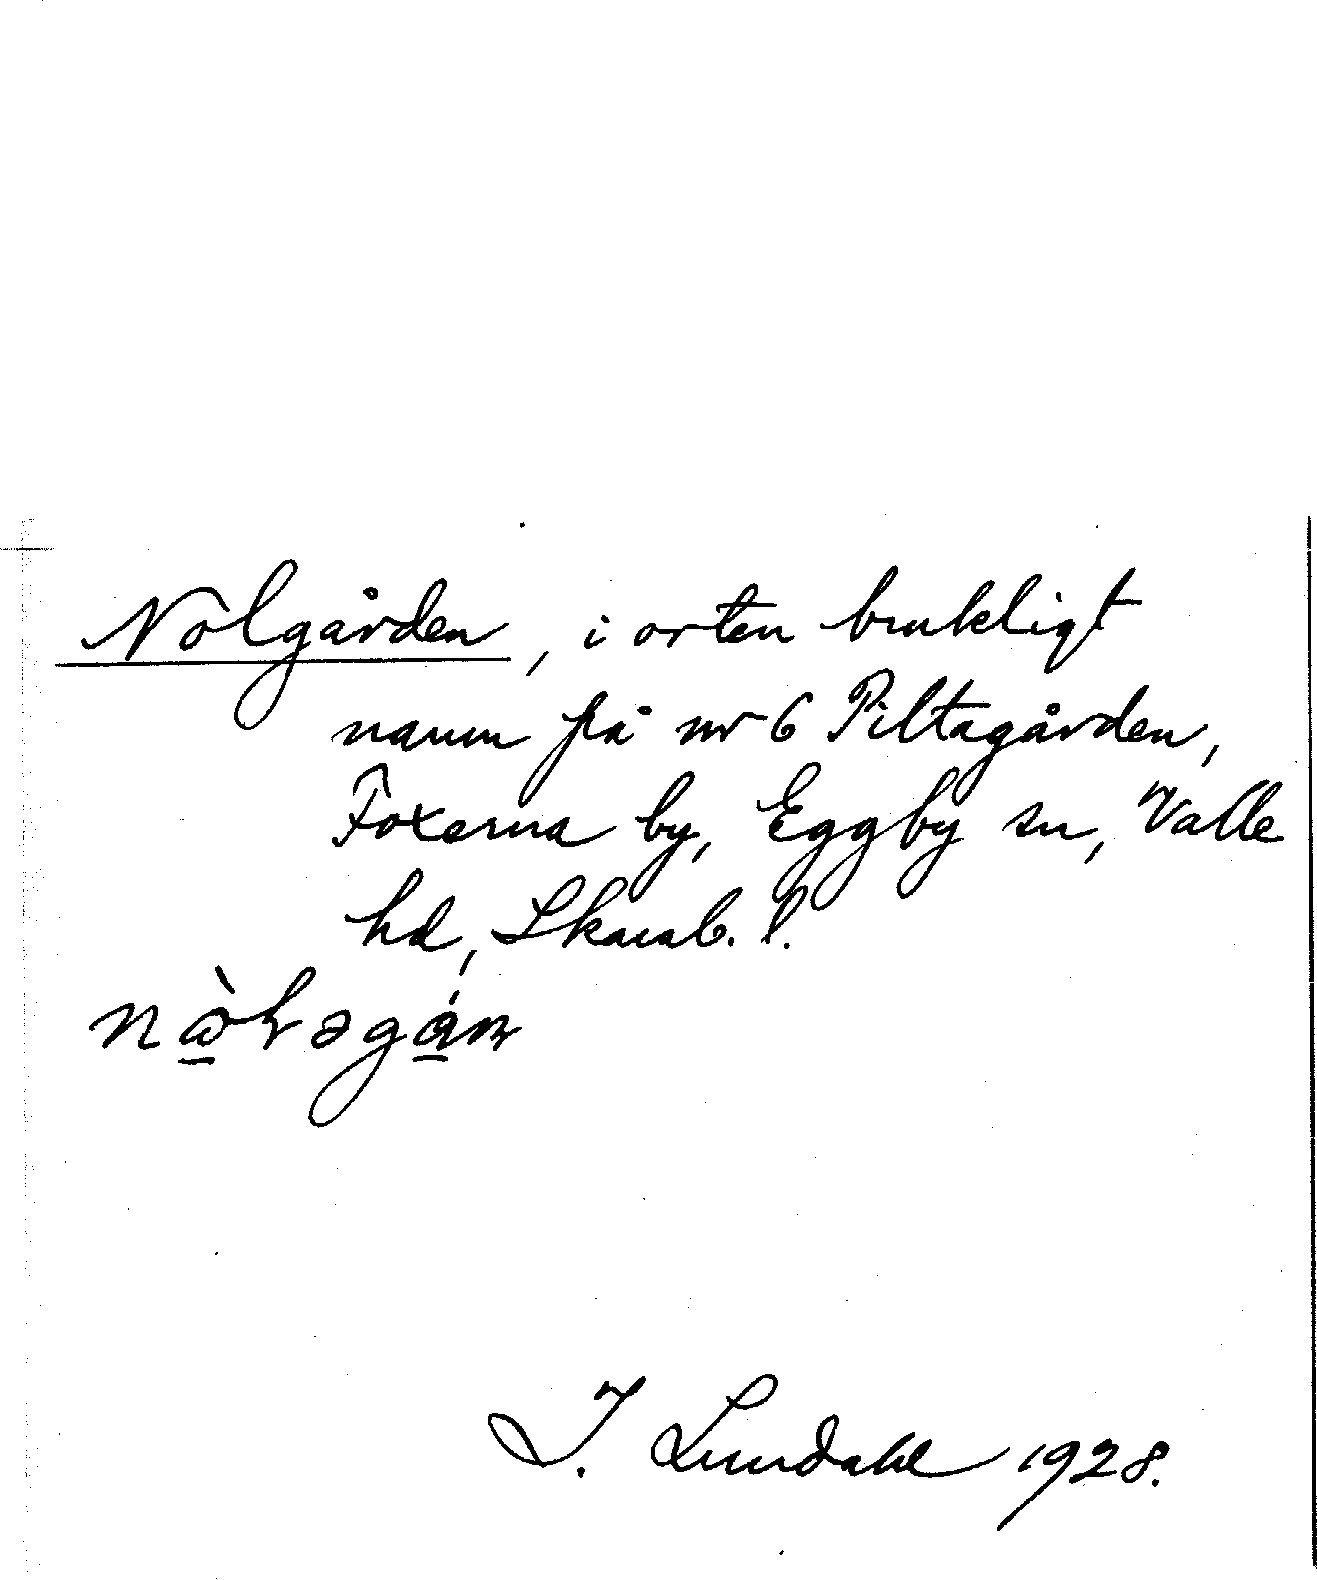 Nolgården, i orten brukligt
namn på nr 6 Piltagården,
Foxerna by, Eggby sn, Valle
hd, Skarab. l.
I. Lundahl 1928.